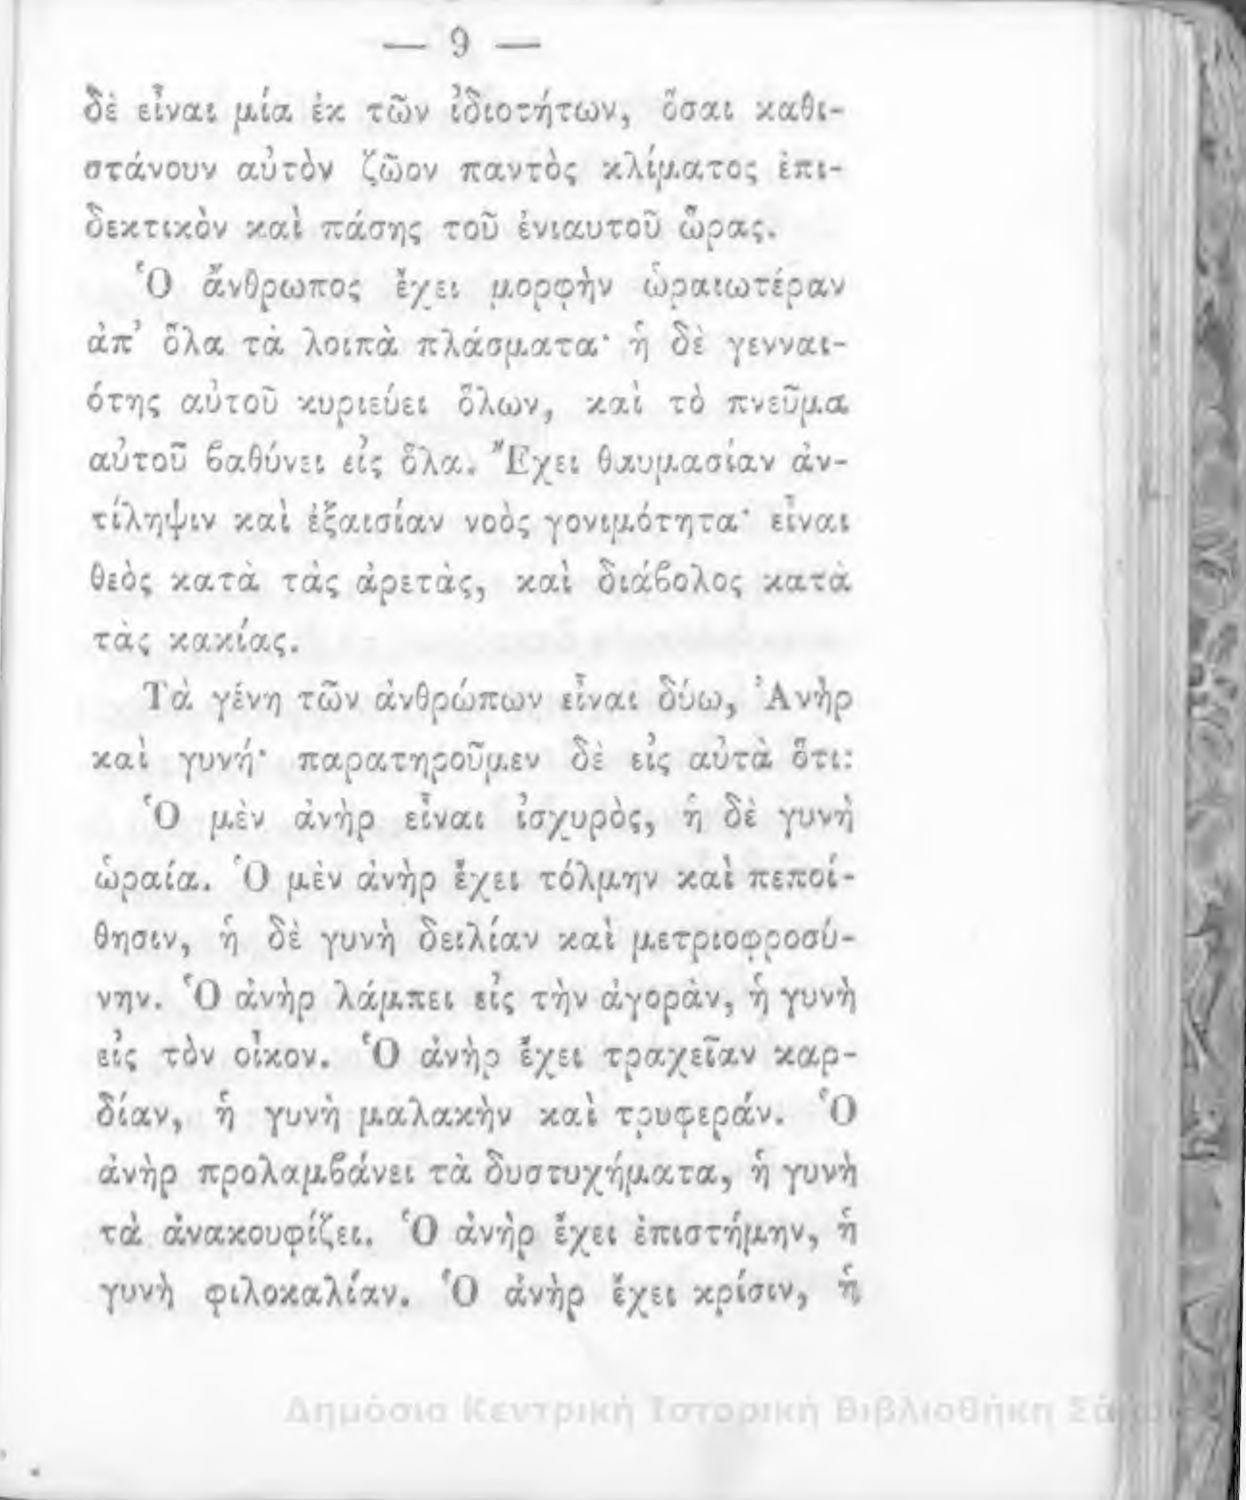 — 9 —
δὲ εἶναι μία ἐκ τῶν ἰδιοτήτων, ὅσαι καθι-
στάνουν αὐτὸν ζῶον παντὸς κλίματος ἐπι-
δεκτικὸν καὶ πάσης τοῦ ἐνιαυτοῦ ὥρας.
Ὁ ἄνθρωπος ἔχει μορφὴν ὡραιωτέραν
ἀπ’ ὅλα τὰ λοιπὰ πλάσματα· ἡ δὲ γενναι-
ότης αὐτοῦ κυριεύει ὅλων, καὶ τὸ πνεῦμα
αὐτοῦ ϐαθύνει εἰς ὅλα. Ἔχει θαυμασίαν ἀν-
τίληψιν καὶ ἐξαισίαν νοὸς γονιμότητα· εἶναι
θεὸς κατὰ τὰς ἀρετὰς, καὶ διάϐολος κατὰ
τὰς κακίας.
Τὰ γένη τῶν ἀνθρώπων εἶναι δύω, Ἀνὴρ
καὶ γυνή· παρατηροῦμεν δὲ εἰς αὐτὰ ὅτι:
Ὁ μὲν ἀνὴρ εἶναι ἰσχυρὸς, ἡ δὲ γυνὴ
ὡραία. Ὁ μὲν ἀνὴρ ἔχει τόλμην καὶ πεποί-
θησιν, ἡ δὲ γυνὴ δειλίαν καὶ μετριοφροσύ-
νην. Ὁ ἀνὴρ λάμπει εἰς τὴν ἀγορὰν, ἡ γυνὴ
εἰς τὸν οἶκον. Ὁ ἀνὴρ ἔχει τραχεῖαν καρ-
δίαν, ἡ γυνὴ μαλακὴν καὶ τρυφεράν. Ὁ
ἀνὴρ προλαμϐάνει τὰ δυστυχήματα, ἡ γυνὴ
τὰ ἀνακουφίζει. Ὁ ἀνὴρ ἔχει ἐπιστήμην, ἡ
γυνὴ φιλοκαλίαν. Ὁ ἀνὴρ ἔχει κρίσιν, ἡ
Δημόσια Κεντρική Ιστορική Βιβλιοθήκη